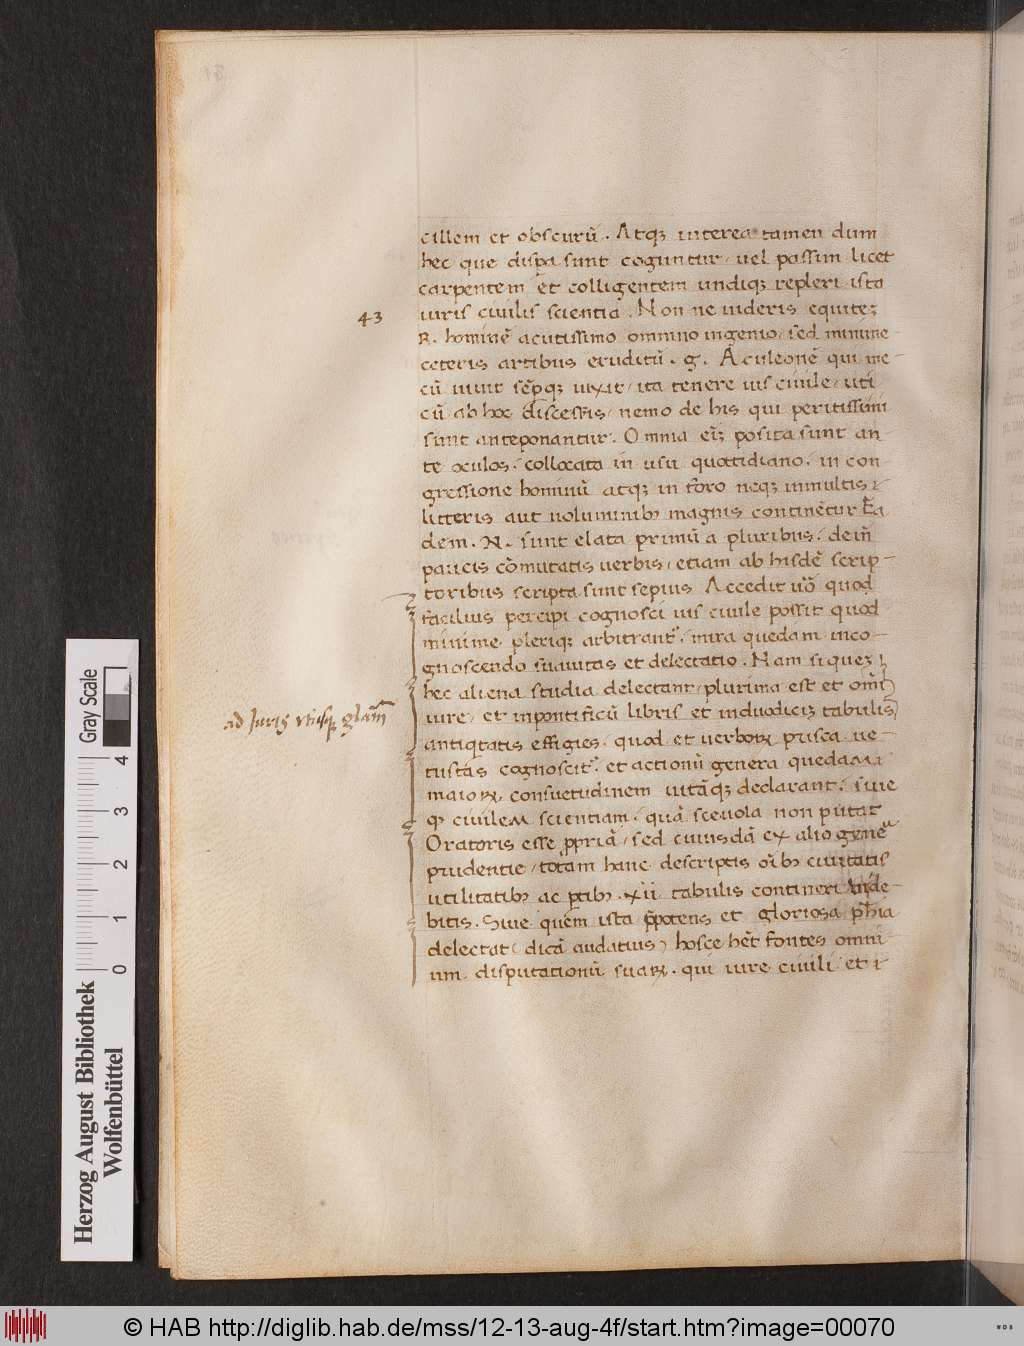 cillem et obscurũ. Atqꝫ interea tamen dum
hec que dispa sunt coguntur, uel passim licet
carpentem et colligentem undiqꝫ repleri ista
43
iuris ciuilis scientia. Non ne uideris equitez
R. hominẽ acutissimo omnino ingenio, sed minime
ceteris artibus eruditũ. g. Aculeonẽ qui me-
cũ uiuit sẽpqꝫ uixit, ita tenere ius ciuile, uti
cũ ab hoc discesseris, nemo de his qui peritissimi
sunt anteponantur. Omnia eĩꝫ posita sunt an-
te oculos, collocata in usu quottidiano, in con-
gressione hominũ atqꝫ in foro neqꝫ in multis
litteris aut uoluminibꝫ magnis continẽtur Ea
dem. N. sunt elata primũ a pluribus, dein
paucis cõmutatis uerbis, etiam ab hisdẽ scrip-
toribus scripta sunt sepius Accedit uõ quod
facilius percipi cognosci ius ciuile possit quod
minime plerique arbitrantr, mira quedam in co-
gnoscendo suauitas et delectatio. Nam si quez
hec aliena studia delectant, plurima est et omni
ad Juris utiusqꝫ gloriam
iure, et in pontificũ libris et in duodeciꝫ tabulis
antiqtatis effigies, quod et uerboꝝ prisca ue-
tustas cognoscitr, et actionũ genera quedam
maioꝝ, consuetudinem uitãqꝫ declarant, siue
qꝫ ciuilem scientiam, quã sceuola non putat
Oratoris esse ppriã, sed cuiusdã ex alio genere
prudentie, totam hanc descriptis oĩbꝫ ciuitatis
utilitatibꝫ ac ptibꝫ .xii tabulis contineri uide-
bitis. Siue quem ista p̃potens et gloriosa phĩa
delectat (dicã audatius) hosce hẽt fontes omni-
um disputationũ suaꝝ. qui iure ciuili et
Gray Scale
4
3
2
1
0
Herzog August Bibliothek
Wolfenbüttel
© HAB http://diglib.hab.de/mss/12-13-aug-4f/start.htm?image=00070